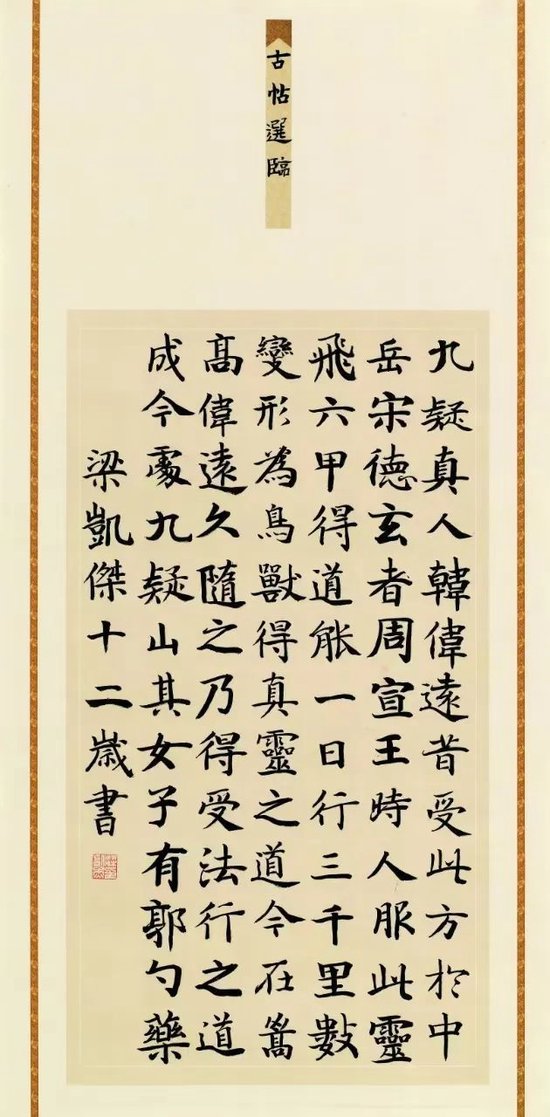 古帖選臨
九疑真人韓偉遠昔受此方於中
岳宋德玄者周宣王時人服此靈
飛六甲得道能一日行三千里數
變形為鳥獸得真靈之道今在嵩
高偉遠久隨之乃得受法行之道
成今處九疑山其女子有郭勺藥
梁凱傑十二歲書